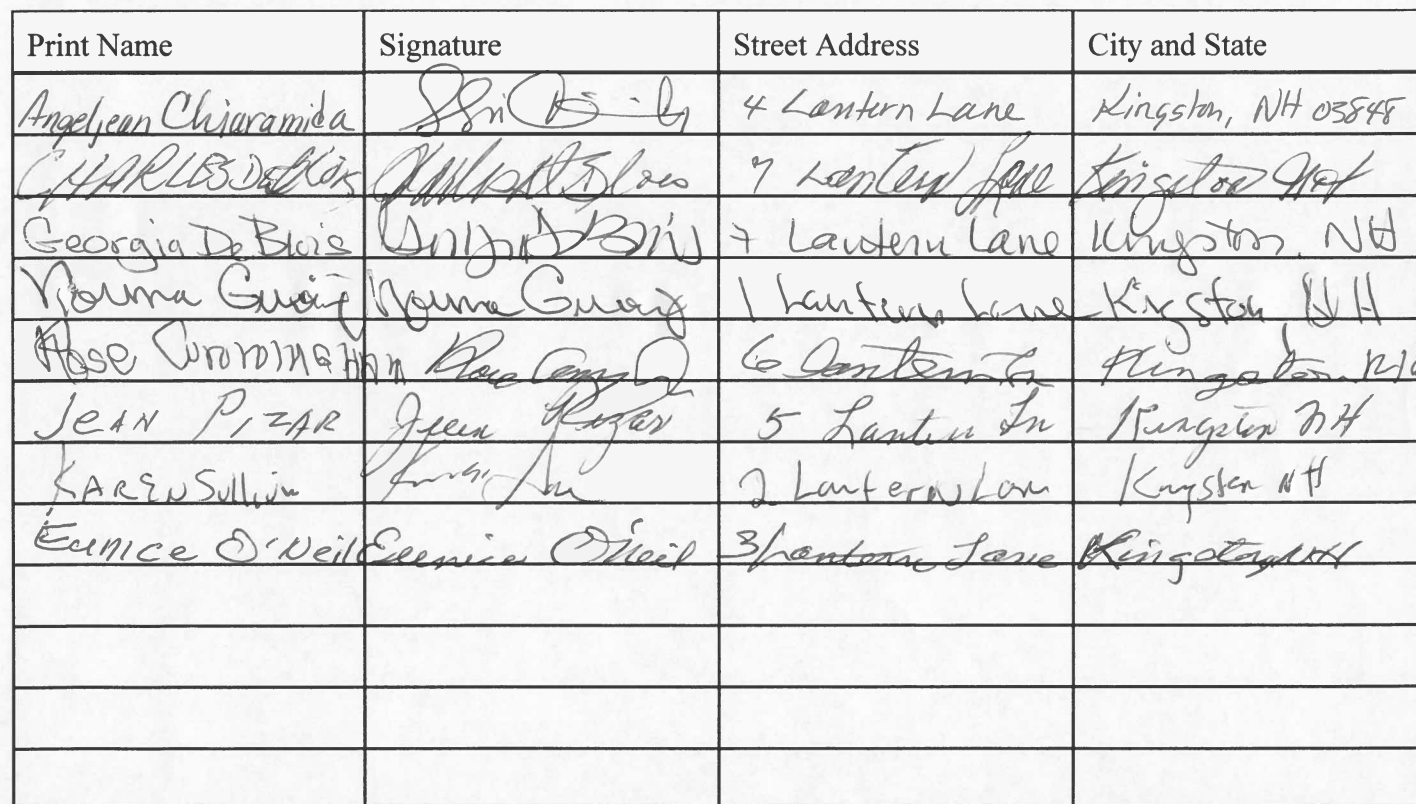 Print Name Signature Street Address City and State
Angeljean Chiaramida 4 Lantern Lane Kingston, NH 03848
CHARLES DeBlois 7 Lantern Lane Kingston NH
Georgia DeBlois 7 Lantern Lane Kingston, NH
Norma Norma 1 Lantern Lane Kingston, NH
Rose Cunningham Rose 6 Lantern Ln Kingston
JEAN PIZAR Jean Pizar 5 Lantern Ln Kingston NH
KAREN Sullivan Karen 2 Lantern Lane Kingston NH
Eunice O'Neil Eunice O'Neil 3 Lantern Lane Kingston NH